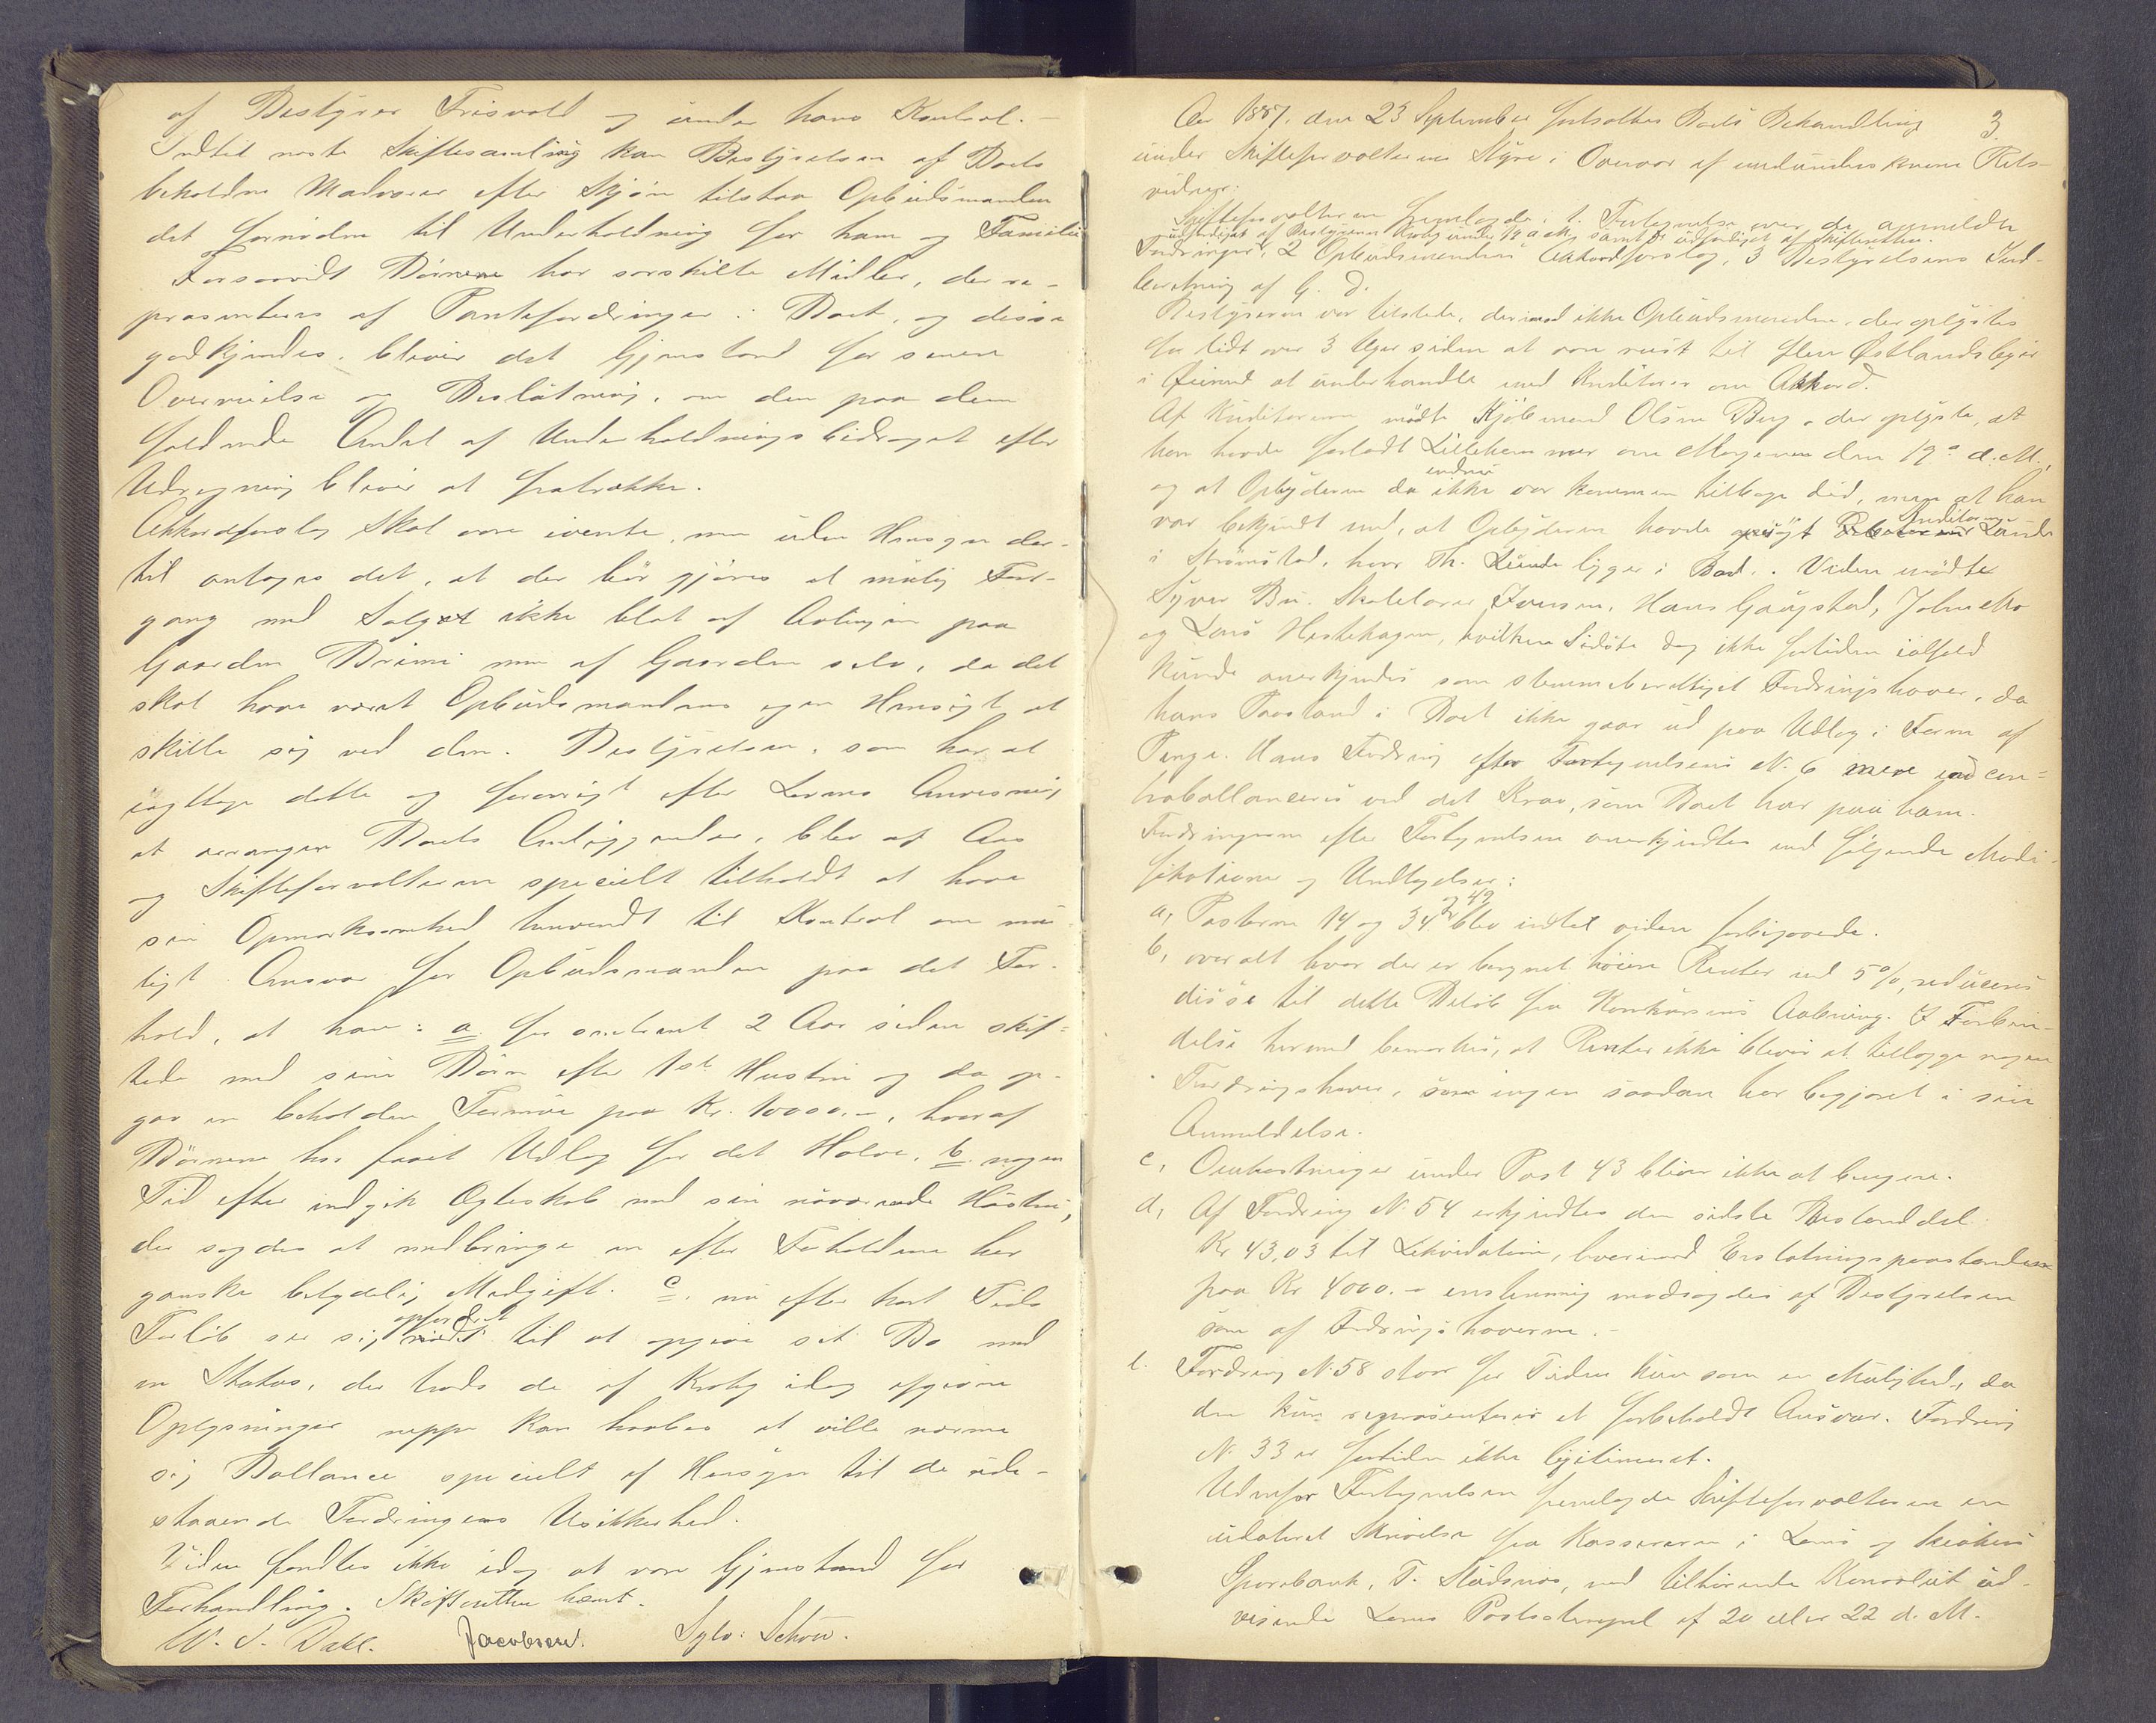 af Bestyrer Frisvold og under hans Kontrol. –
Indtil næste Skiftesamling kan Bestyrelsen af Boets
beholdne Madvarer efter Skjøn tilstaa Opbudsmanden
det fornødne til Underholdning for ham og Familie
Forsaavidt Børnene har særskilte Midler, der re-
præsenteres af Pantefordringer i Boet, og disse
godkjendes, bliver det Gjenstand for senere
Overveielse og Beslutning, om den paa dem
faldende Andel af Underholdningsbidraget efter
Udregning bliver at fratrække.
Akkordforslag skal være ivente, men uden Hensyn der-
til antages det, at der bør gjøres al mulig Frem-
gang med Salget ikke blot af Avlingen paa
Gaarden Brimi men af Gaarden selv, da det
skal have været Opbudsmandens egen Hensigt at
skille sig ved den. Bestyrelsen, som har at
iagttage dette og forøvrigt efter Lovens Anvisning
at arrangere Boets Anliggender, blev af
og Skifteforvalteren specielt tilholdt at have
sin Opmærksomhed henvendt til Kontrol om mu-
ligt Ansvar for Opbudsmanden paa det For-
hold, at han: a. for omtrent 2 Aar siden skif-
tede med sine Børn efter 1ste Hustru og da op-
gav en beholden Formue paa Kr. 10000.–, hvoraf
Børnene har faaet Udlæg for det Halve, b. nogen
Tid efter indgik Ægteskab med sin nuværende Hustru,
der sagdes at medbringe en efter Forholdene her
ganske betydelig Medgift. c. nu efter kort Tids
opfordret
Forløb ser sig nødt til at opgive sit Bo med
en Status, der trods de af Kroby idag afgivne
Oplysninger neppe kan haabes at ville nærme
sig Ballance specielt af Hensyn til de ude-
staaende Fordringers Usikkerhed.
Videre fandtes ikke idag at være Gjenstand for
Forhandling. Skifteretten hævet.
W. S. Dahl. Jacobsen. Sylv: Schou.
3.
Aar 1887, den 23 September fortsattes Boets Behandling
under Skifteforvalterens Styre i Overvær af undertegnede Rets-
vidner.
Skifteforvalteren fremlagde: 1. Fortegnelse over de anmeldte
udfærdiget af Bestyreren Kroby under 19 d. M. samt udfærdiget af Skifteretten.
Fordringer, 2 Opbudsmandens Akkordforslag, 3 Bestyrelsens Ind-
beretning af G. D.
Bestyreren var tilstede, derimod ikke Opbudsmanden, der oplystes
for lidt over 3 Uger siden at være reist til flere Østlandsbyer
i Øiemed at underhandle med Kreditorer om Akkord.
Af Kreditorerne mødte Kjøbmand Olsen Berg, der oplyste, at
han havde forladt Lillehammer om Morgenen den 19de d. M.,
endnu
og at Opbyderen da ikke var kommen tilbage did, men at han
Kreditoren
var bekjendt med, at Opbyderen havde søgt Lunde
i Strömstad, hvor Th. Lunde ligger i Bad. Videre mødte
Syver Bu. Skolelærer Iversen, Hans Gaupstad, John Mo
og Lars Hestehagen, hvilken Sidste dog ikke fortiden ialfald
kunde anerkjendes som stemmeberettiget Fordringshaver, da
hans Paastand i Boet ikke gaar ud paa Udlæg i Form af
Penge. Hans Fordring efter Fortegnelsens N. 6 mere end con-
traballanceres ved det Krav, som Boet har paa ham.
Fordringerne efter Fortegnelsen anerkjendtes med følgende Modi-
fikationer og Undtagelser:
a, Posterne 14 og 34 & 49 blev indtil videre forbigaaede.
b, overalt hvor der er beregnet høiere Renter end 5%, reduceres
disse til dette Beløb fra Konkursens Aabning. I Forbin-
delse hermed bemærkes, at Renter ikke bliver at tillægge nogen
Fordringshaver, som ingen saadan har begjæret i sin
Anmeldelse.
c, Omkostninger under Post 43 bliver ikke at beregne.
d, Af Fordring N. 54 erkjendtes den sidste Bestanddel
Kr 43,03 til Likvidation, hvorimod Erstatningspaastanden
paa Kr 4000.– enstemmig modsagdes af Bestyrelsen
som af Fordringshaverne. –
e. Fordring N. 58 staar for Tiden kun som en Mulighed, da
den kun repræsenterer et forbeholdt Ansvar. Fordring
N. 33 er fortiden ikke legitimeret.
Udenfor Fortegnelsen fremlagde Skifteforvalteren en
udateret Skrivelse fra Kassereren i Loms og Skiakers
Sparebank, T. Stadsnes, med tilhørende Konvolut ud-
visende Loms Poststempel af 20 eller 22 d. M.